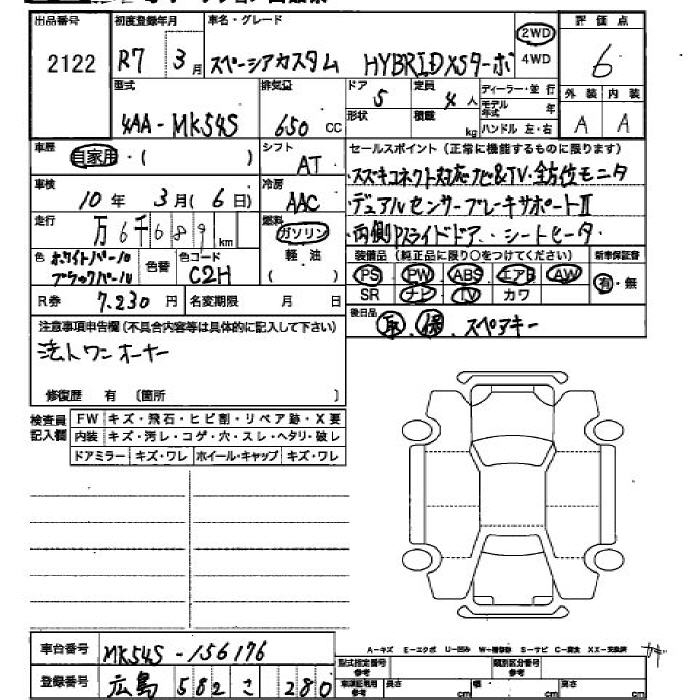 出品番号 初度登録年月 車名・グレード 2WD 評価点
2122 R7 3月 スペーシアカスタム HYBRID XSターボ 4WD 6
型式 排気量 ドア 5 定員 4人 ディーラー・並行 外装 内装
4AA-MK54S 650 CC 形状 積載 kg モデル年式 年 ハンドル 左・右 A A
車歴 自家用・( ) シフト AT セールスポイント（正常に機能するものに限ります）
車検 10年 3月(6日) 冷房 AAC ・スズキコネクト対応ナビ&TV・全方位モニタ
・デュアルセンサーブレーキサポートII
走行 万6千689km 燃料 ガソリン ・両側Pスライドドア・シートヒータ・
色 ホワイトパール ブラックパール 色替 色コード C2H 軽油 ( )
装備品（純正品に限り○をつけてください） 新車保証書
PS PW ABS エアB AW 有・無
SR ナビ TV カワ
R券 7,230円 名変期限 月 日
後日品 取・保・スペアキー
注意事項申告欄（不具合内容等は具体的に記入して下さい）
法人ワンオーナー
修復歴 有 〔箇所 〕
検査員記入欄 FW キズ・飛石・ヒビ割・リペア跡・X要
内装 キズ・汚レ・コゲ・穴・スレ・ヘタリ・破レ
ドアミラー キズ・ワレ ホイール・キャップ キズ・ワレ
車台番号 MK54S-156176
A-キズ E-エクボ U-凹み W-補修跡 S-サビ C-腐食 XX-交換済
登録番号 広島 582 さ 280
型式指定番号 参考 類別区分番号 参考
車検証明用 参考 長さ cm 幅 cm 高さ cm